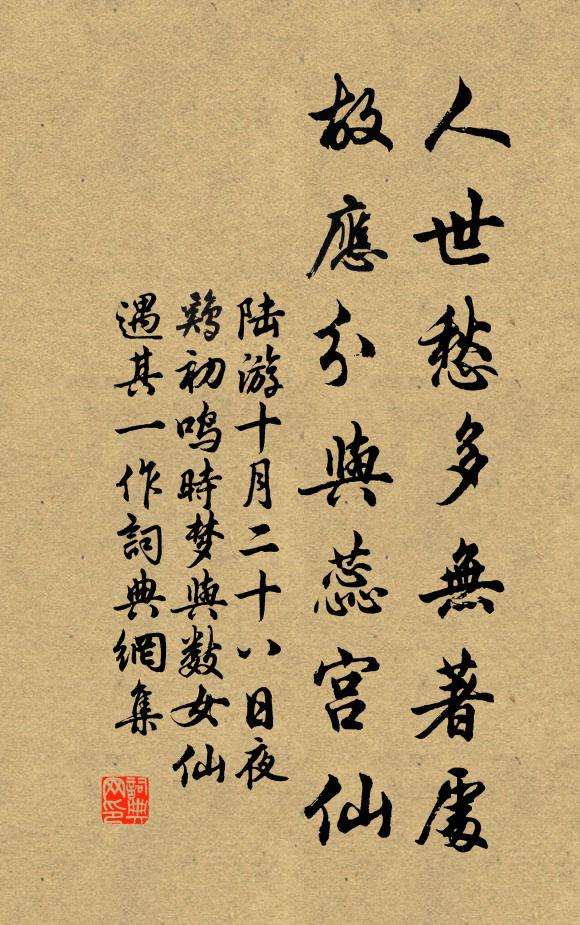 人世愁多無著處
故應分與蕊宮仙
陆游十月二十八日夜
鷄初鸣時梦與数女仙
遇其一作詞典網集
詞典网印